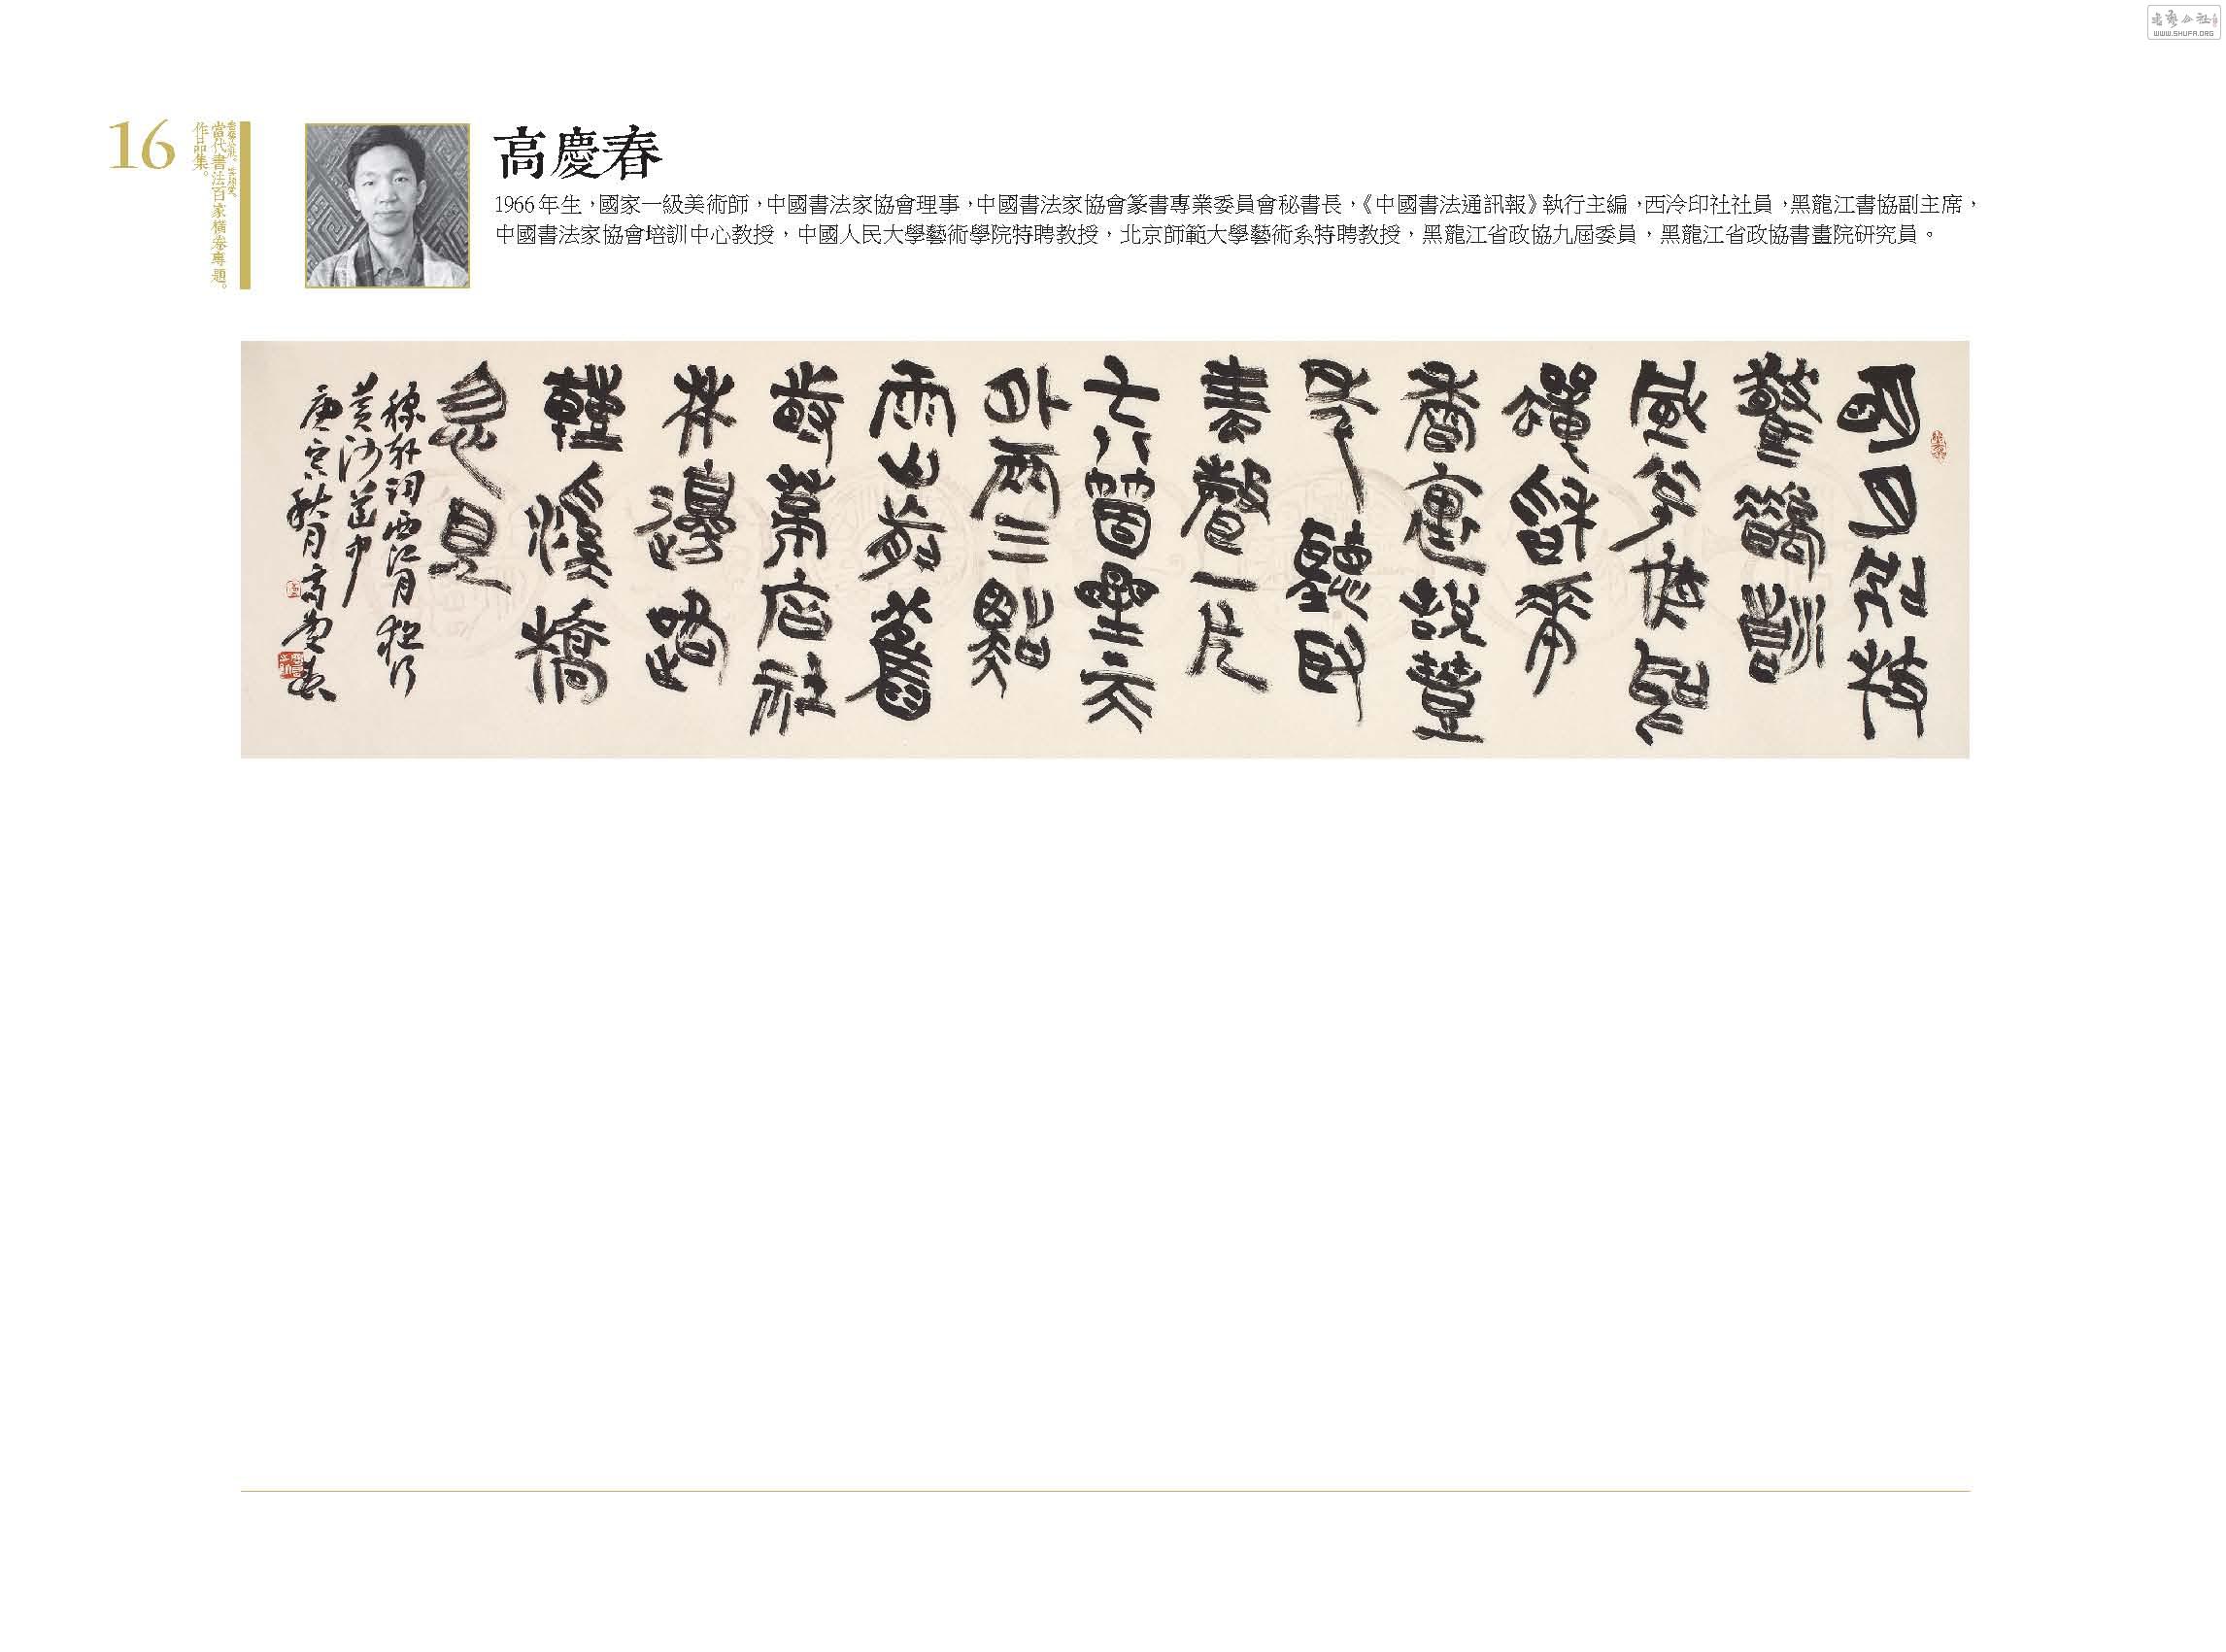 16
當代書法百家橫卷專題。
作品集。
高慶春
1966年生，國家一級美術師，中國書法家協會理事，中國書法家協會篆書專業委員會秘書長，《中國書法通訊報》執行主編，西泠印社社員，黑龍江書協副主席，
中國書法家協會培訓中心教授，中國人民大學藝術學院特聘教授，北京師範大學藝術系特聘教授，黑龍江省政協九屆委員，黑龍江省政協書畫院研究員。
明月別枝
驚鵲清
風半夜鳴
蟬稻花
香裏說豐
年聽取
蛙聲一片
七八箇星天
外兩三點
雨山前舊
時茅店社
林邊路
轉溪橋
忽見
稼軒詞西江月夜行
黃沙道中
庚寅秋月高慶春
書藝公社
WWW.SHUFA.ORG